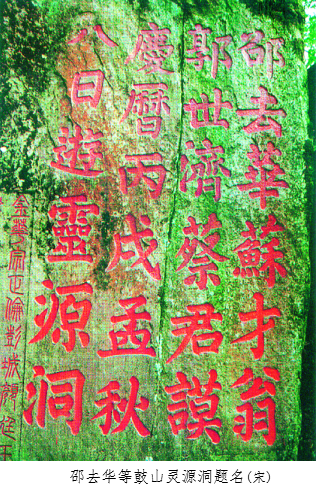 邵去華蘇才翁
郭世濟蔡君謨
慶曆丙戌孟秋
八日遊靈源洞
金華正倫彭城
邵去华等鼓山灵源洞题名(宋)